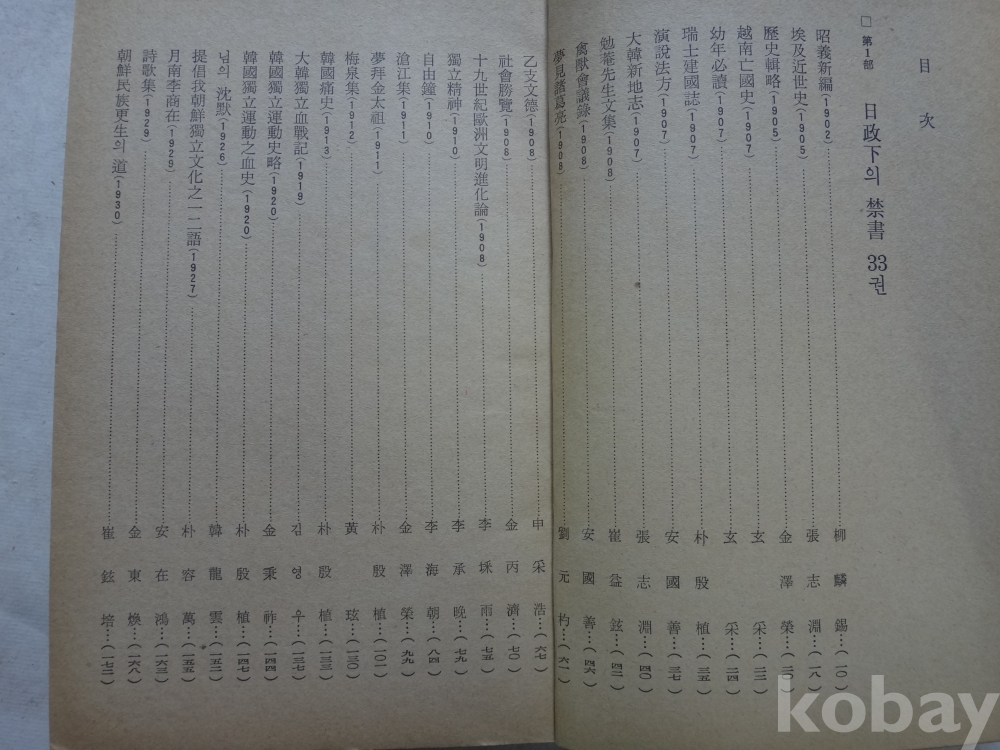 目次
□ 第1部 日政下의 禁書 33권
昭義新編(1902)……柳麟錫…(一〇)
埃及近世史(1905)……張志淵…(一八)
歷史輯略(1905)……金澤榮…(二〇)
越南亡國史(1907)……玄采…(二二)
幼年必讀(1907)……玄采…(二四)
瑞士建國誌(1907)……朴殷植…(三五)
演說法方(1907)……安國善…(三七)
大韓新地志(1907)……張志淵…(四〇)
勉菴先生文集(1908)……崔益鉉…(四二)
禽獸會議錄(1908)……安國善…(四六)
夢見諸葛亮(1908)……劉元杓…(六一)
乙支文德(1908)……申采浩…(六七)
社會勝覽(1908)……金丙濟…(七〇)
十九世紀歐洲文明進化論(1908)……李埰雨…(七五)
獨立精神(1910)……李承晩…(七九)
自由鐘(1910)……李海朝…(八四)
滄江集(1911)……金澤榮…(九九)
夢拜金太祖(1911)……朴殷植…(一〇一)
梅泉集(1912)……黃玹…(一三〇)
韓國痛史(1913)……朴殷植…(一三三)
大韓獨立血戰記(1919)……김영우…(一三七)
韓國獨立運動史略(1920)……金秉祚…(一四四)
韓國獨立運動之血史(1920)……朴殷植…(一四七)
님의 沈默(1926)……韓龍雲…(一五二)
提倡我朝鮮獨立文化之一二語(1927)……朴容萬…(一五五)
月南李商在(1929)……安在鴻…(一六三)
詩歌集(1929)……金東煥…(一六八)
朝鮮民族更生의 道(1930)……崔鉉培…(一七二)
kobay